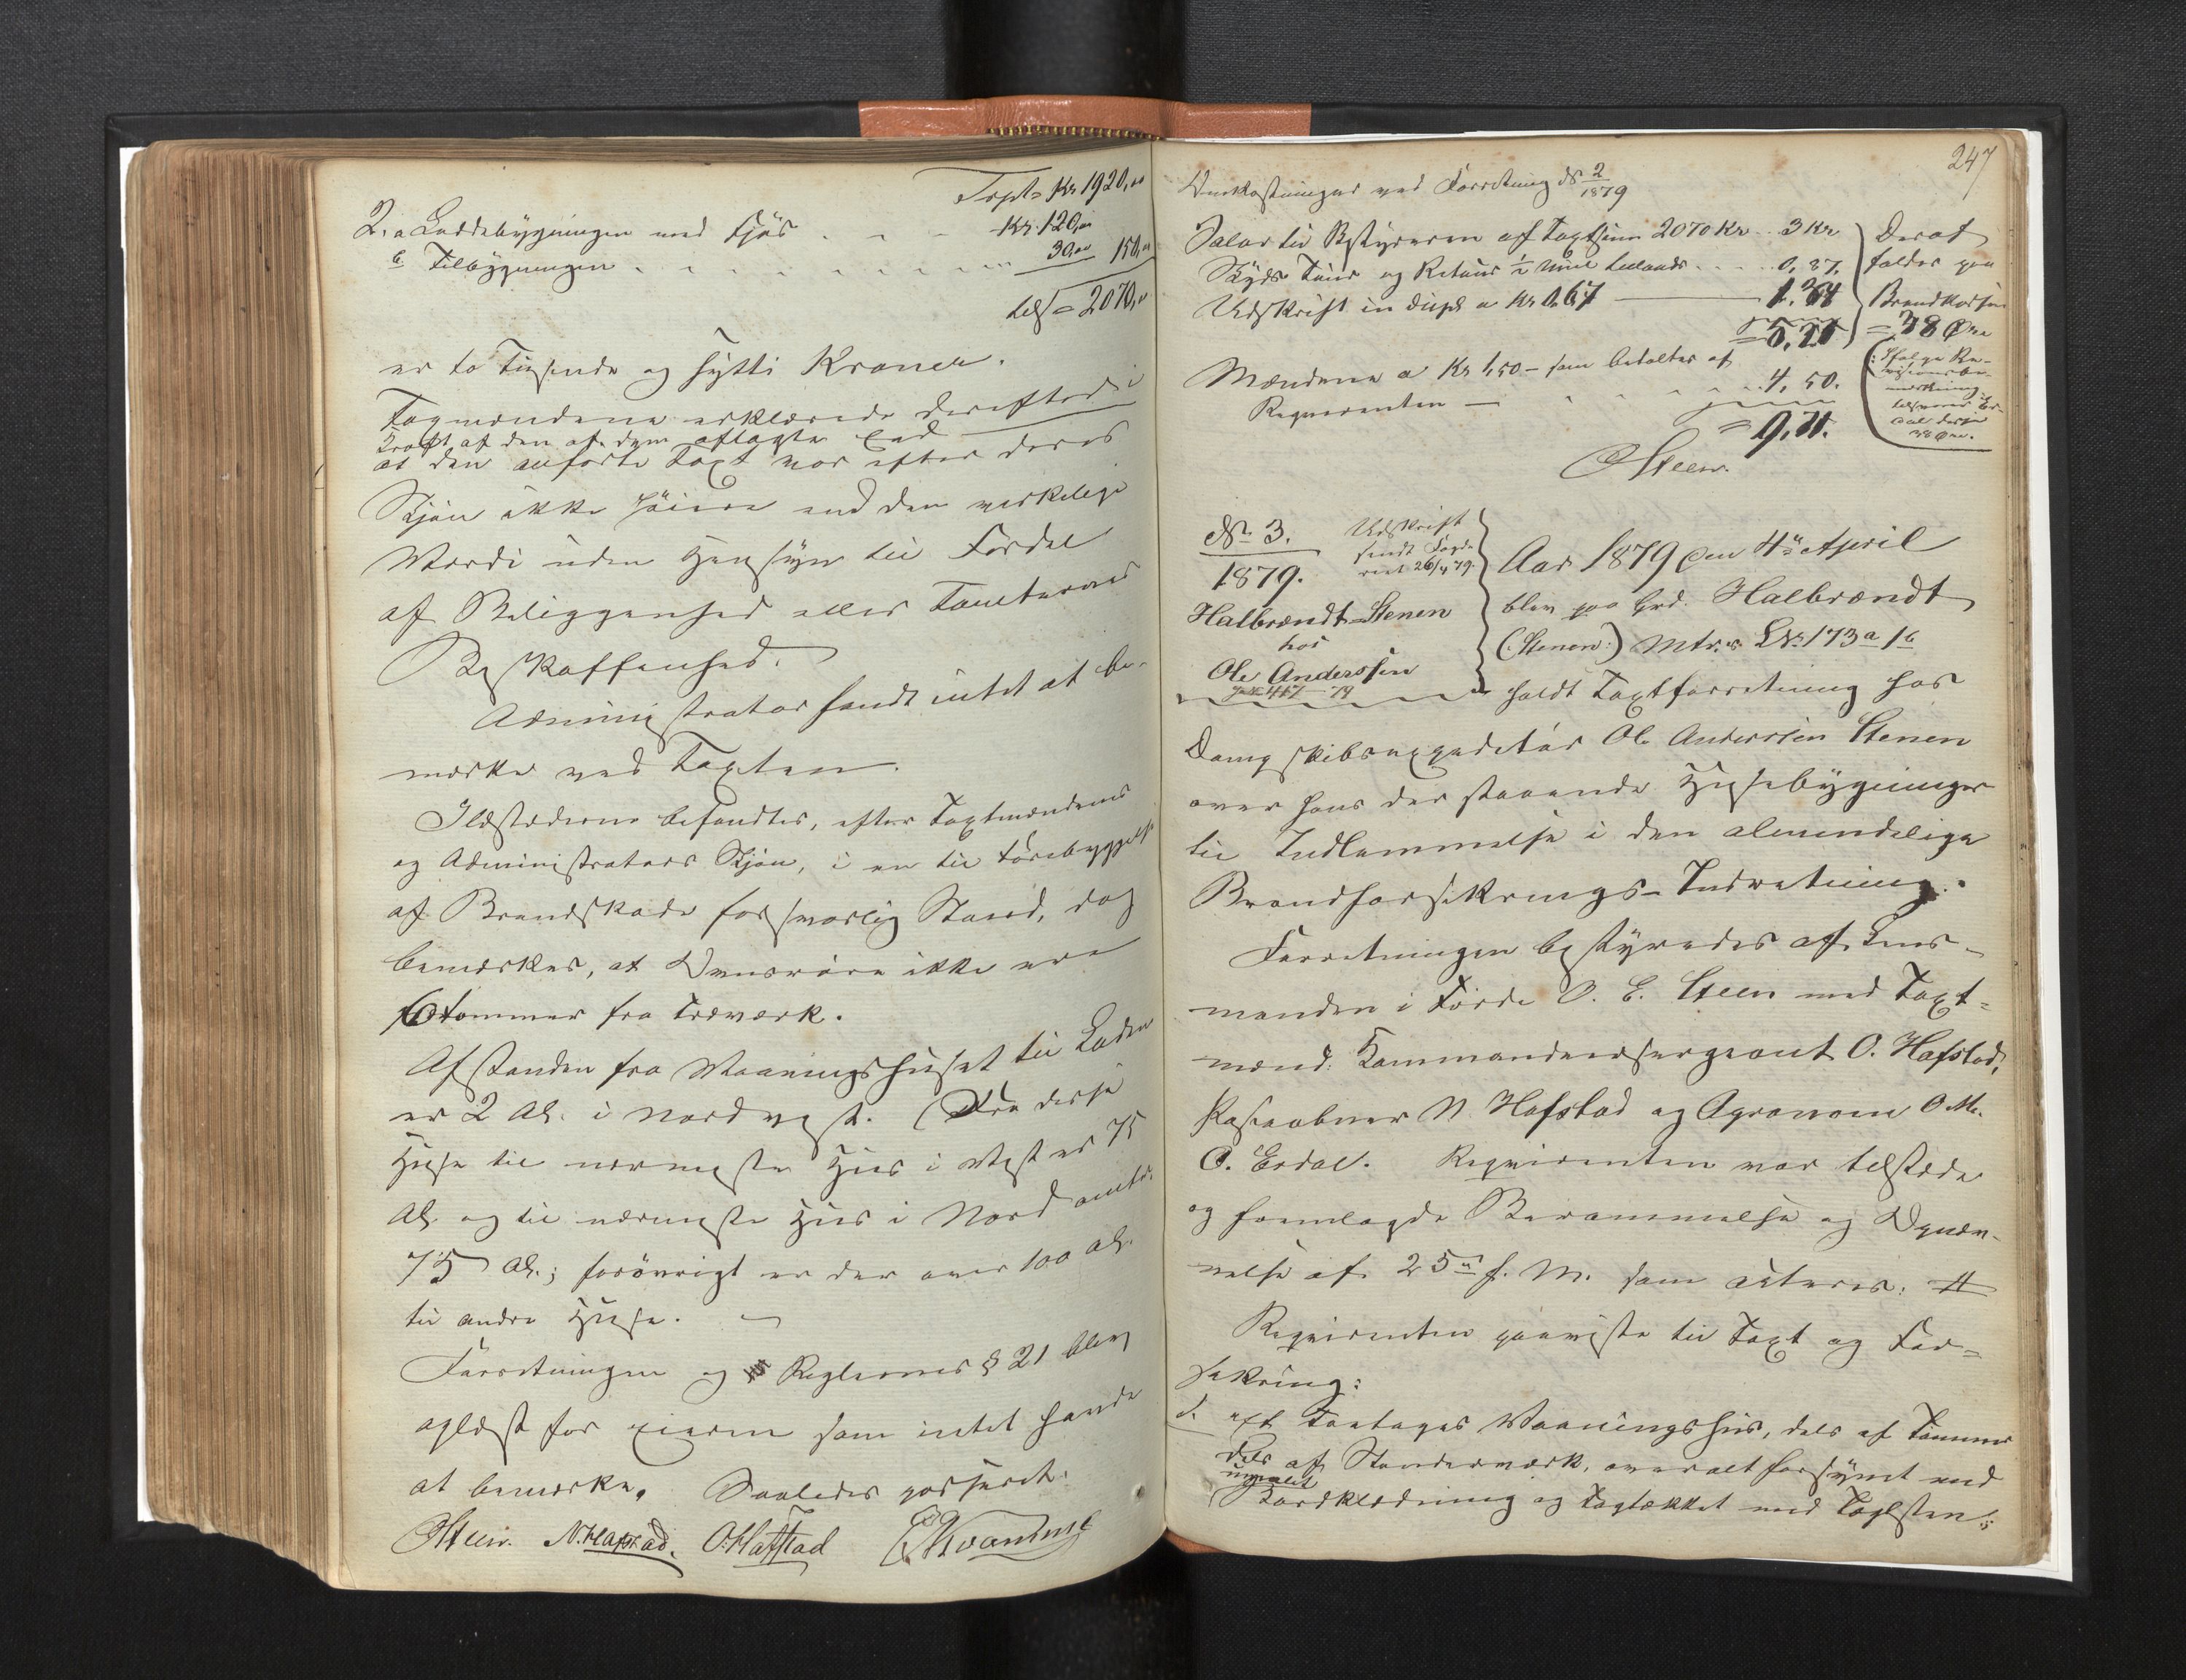 Trpt = Kr 1920,00
2. a Laddebygningen med Fjøs . . . Kr. 120,00
b Tilbygningen . . . . . . . . 30,00 150,00
tils = 2070,00
er to Tusende og sytti Kroner.
Tagmændene erklærede derefter i
Kraft af den af dem aflagte Eed
at den anførte Taxt var efter deres
Skjøn ikke høiere end den virkelige
Værdi uden Hensyn til Fordel
af Beliggenhed eller Tomternes
Beskaffenhed.
Administrator fandt intet at be-
mærke ved Taxten.
Ildstederne befandtes, efter Taxtmændenes
og Administrators Skjøn, i en til Forebyggelse
af Brandskade forsvarlig Stand, dog
bemærkes, at Ovnsrøre ikke ere
6 tommer fra Træværk.
Afstanden fra Vaaningshuset til Laden
er 2 Al. i Nordvest. (Fra disse
Huse til nærmeste Hus i Vest er 75
Al. og til nærmeste Hus i Nord omtr.
75 Al.; forøvrigt er der over 100 al.
til andre Huse.
Forretningen og Reglernes § 21 blev
oplæst for Eieren som intet havde
at bemærke. Saaledes passeret.
OSteen. N. Hafstad. O. Hafstad Kvamme
247
Omkostninger ved Forretning No 2/1879
Salær til Bestyreren af Taxtsum 2070 Kr .. 3 Kr
Skyds Tour og Retour ½ Miil tillands . . . . 0,87.
Udskrift in dupl a Kr 0.67 — 1.34
= 5,21
Deraf
falder paa
Brandkassen
= 38 Øre
Mændene a Kr 1,50 – som betaltes af
Reqvirenten — . . . . 4,50.
= 9,71.
(: Ifølge Re-
visionsbe-
mærkning
disse
38 Øre.
OSteen.
No 3.
1879.
Udskrift
sendt Fogde-
riet 26/4 79.
Halbrændt-Stenen
hos
Ole Anderssen
467 79
Aar 1879 den 4de April
blev paa Grd. Halbrændt
(Stenen) Mtr. No LNo 173a 1b
holdt Taxtforretning hos
Dampskibsexpeditør Ole Anderssen Stenen
over hans der staaende Husebygninger
til Indlemmelse i den almindelige
Brandforsikrings-Indretning.
Forretningen bestyredes af Lens-
manden i Førde O. E. Steen med Taxt=
mænd: Kommandeersergeant O. Hafstad,
Postaabner N. Hafstad og Agronom O. M.
O. Erdal. Reqvirenten var tilstede
og fremlagde Berammelse og Opnæv-
nelse af 25de f. M. som acteres. #
Reqvirenten paaviste til Taxt og For=
sikring:
1. et Toetages Vaaningshus, dels af Tømmer
dels af Stenderværk, overalt forsynet med
umalet
Bordklædning og tagtækket med Taglsten;